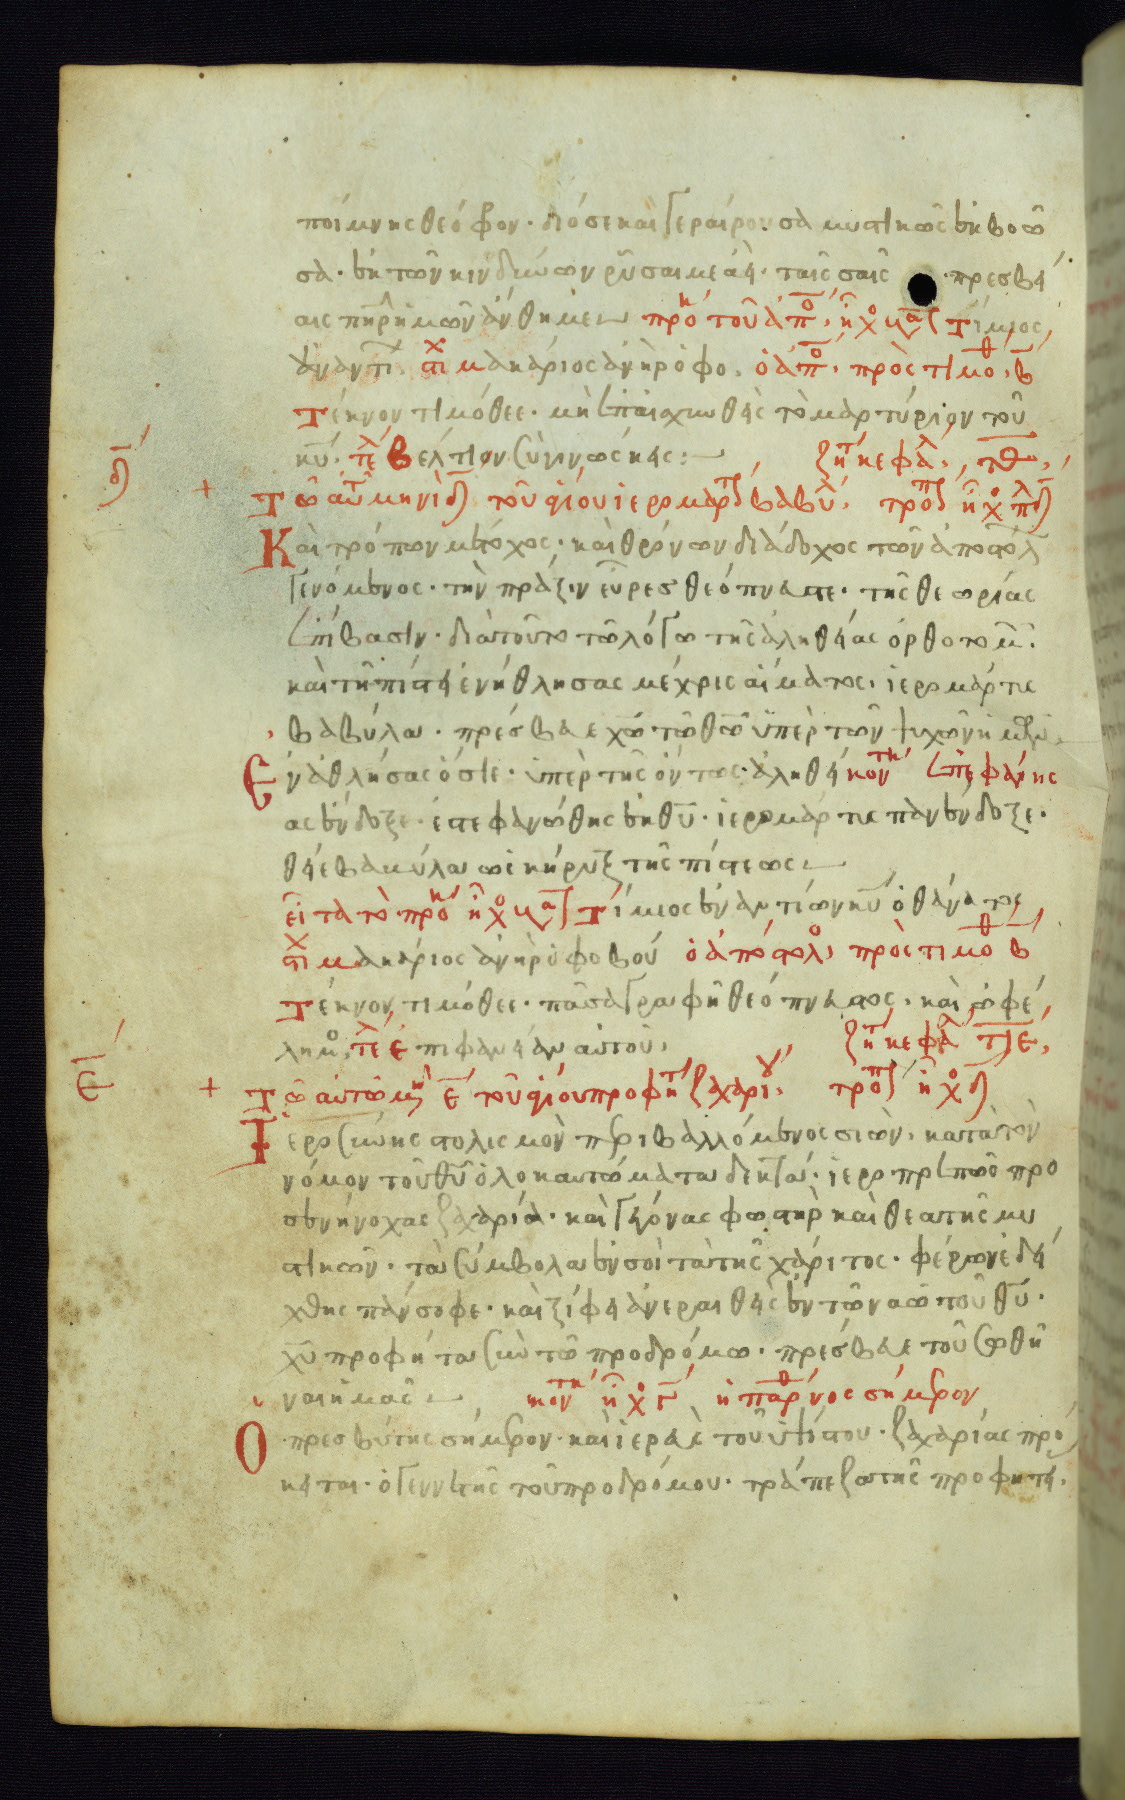 ποίμνης θεόφρον· διό σε καὶ γεραίρουσα μυστικῶς ἐκβοῶ
σα· ἐκ τῶν κινδύνων ρῦσαι με ἀεί· ταῖς σαῖς πρεσβεί
αις πηρ ἡμῶν ἄνθιμε
προκ τοῦ ἀπο, ἦχ Τίμιος
ἐναντι στιχ μακάριος ἀνὴρ ὁ φο. ὁ ἀπο, πρὸς τιμοθ, β
Τέκνον τιμόθεε· μὴ ἐπαισχυνθῇς τὸ μαρτύριον τοῦ
κυ. τελ Βέλτιον σὺ γινώσκεις:
ζητ κεφαλ, τθ,
δ
Τῶ αὐτ μηνὶ δ τοῦ ἁγίου ἱερομαρτ βαβυλ. τροπ ἦχ πλ δ
Καὶ τρόπων μέτοχος· καὶ θρόνων διάδοχος τῶν ἀποστόλ
γενόμενος· τὴν πράξιν εὗρες θεόπνευστε· τῆς θεωρίας
ἐπίβασιν· διὰ τοῦτο τῶ λόγω τῆς ἀληθείας ὀρθοτομ.
καὶ τῆ πίστει ἐνήθλησας μέχρις αἵματος· ἱερομάρτυ
βαβύλα· πρέσβευε χω τῶ θω ὑπὲρ τῶν ψυχῶν ἡμῶν
Ἐναθλήσας ὅσιε· ὑπὲρ τῆς ὄντως ἀληθεί κοντ ἐπεφάνης
ας ἔνδοξε· ἐστεφανώθης ἐκ θυ· ἱερομάρτυ πανένδοξε·
θεῖε βαβύλα ὡς κήρυξ τῆς πίστεως
εἶτα τὸ προκ ἦχ Τίμιος ἐναντίων κυ ὁ θάνατος
στιχ μακάριος ἀνὴρ ὁ φοβού ὁ ἀποστολ, πρὸς τιμοθ β
Τέκνον τιμόθεε· πᾶσα γραφὴ θεόπνευστος, καὶ ὠφέ
λιμο, τελ ἐπιφάνειαν αὐτοῦ,
ζητ κεφαλ τιε,
ε
Τῶ αὐτῶ μην ε τοῦ ἁγίου προφητ ζαχαριου. τροπ ἦχ δ
Ἱερωσύνης στολισμὸν περιβαλλόμενος σιών, κατὰ τὸν
νόμον τοῦ θυ ὁλοκαυτώματα δεκτά· ἱεροπρεπῶς προ
σενήνοχας ζαχαρία· καὶ γέγονας φωστὴρ καὶ θεατὴς μυ
στικῶν· τὰ σύμβολα ἐν σοὶ τὰ τῆς χάριτος· φέρων ἐδεί
χθης πάνσοφε· καὶ ξίφει ἀνεραιθεὶς ἐν τῶ ναῶ τοῦ θυ·
χυ προφήτα σὺν τῶ προδρόμω· πρέσβευε τοῦ σωθῆ
ναι ἡμᾶς
κοντ ἦχ γ ἡ παρθένος σήμερον
Ὁ πρεσβύτης σήμερον· καὶ ἱερεὺς τοῦ ὑψίστου· ζαχαρίας πρό
κειται· ὁ γεννητὴς τοῦ προδρόμου· τράπεζα τῆς προφητεί,